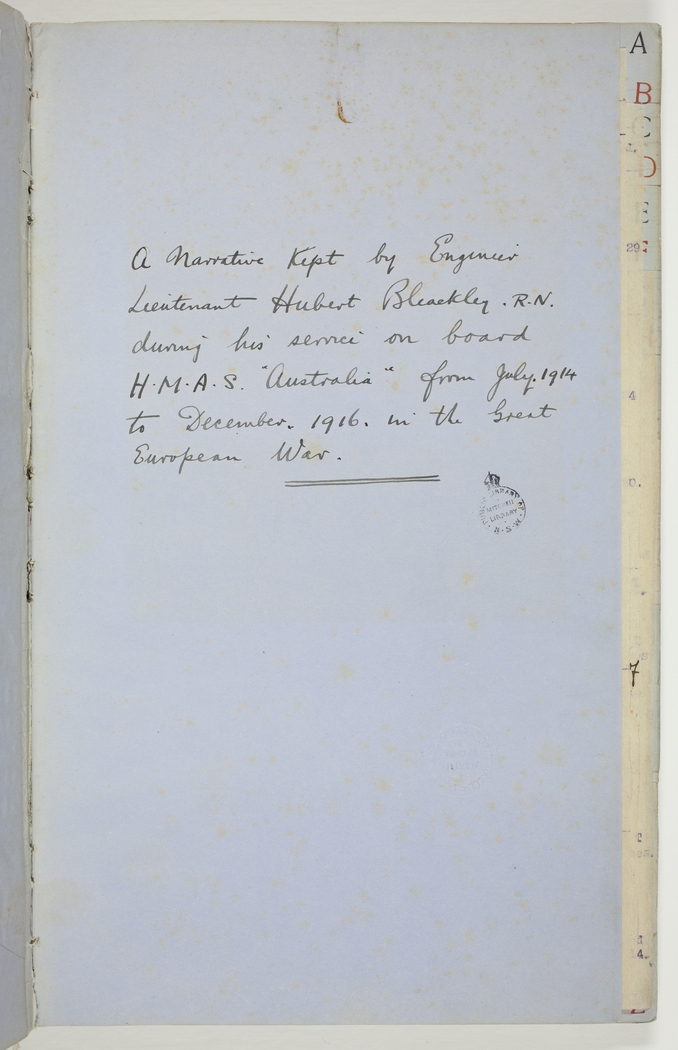 A Narrative Kept by Engineer
Lieutenant Hubert Bleackley. R.N.
during his service on board
H.M.A.S. "Australia" from July. 1914
to December. 1916. in the Great
European War.
MITCHELL
LIBRARY
N.S.W.
A
B
C
D
E
29
4
7
4.